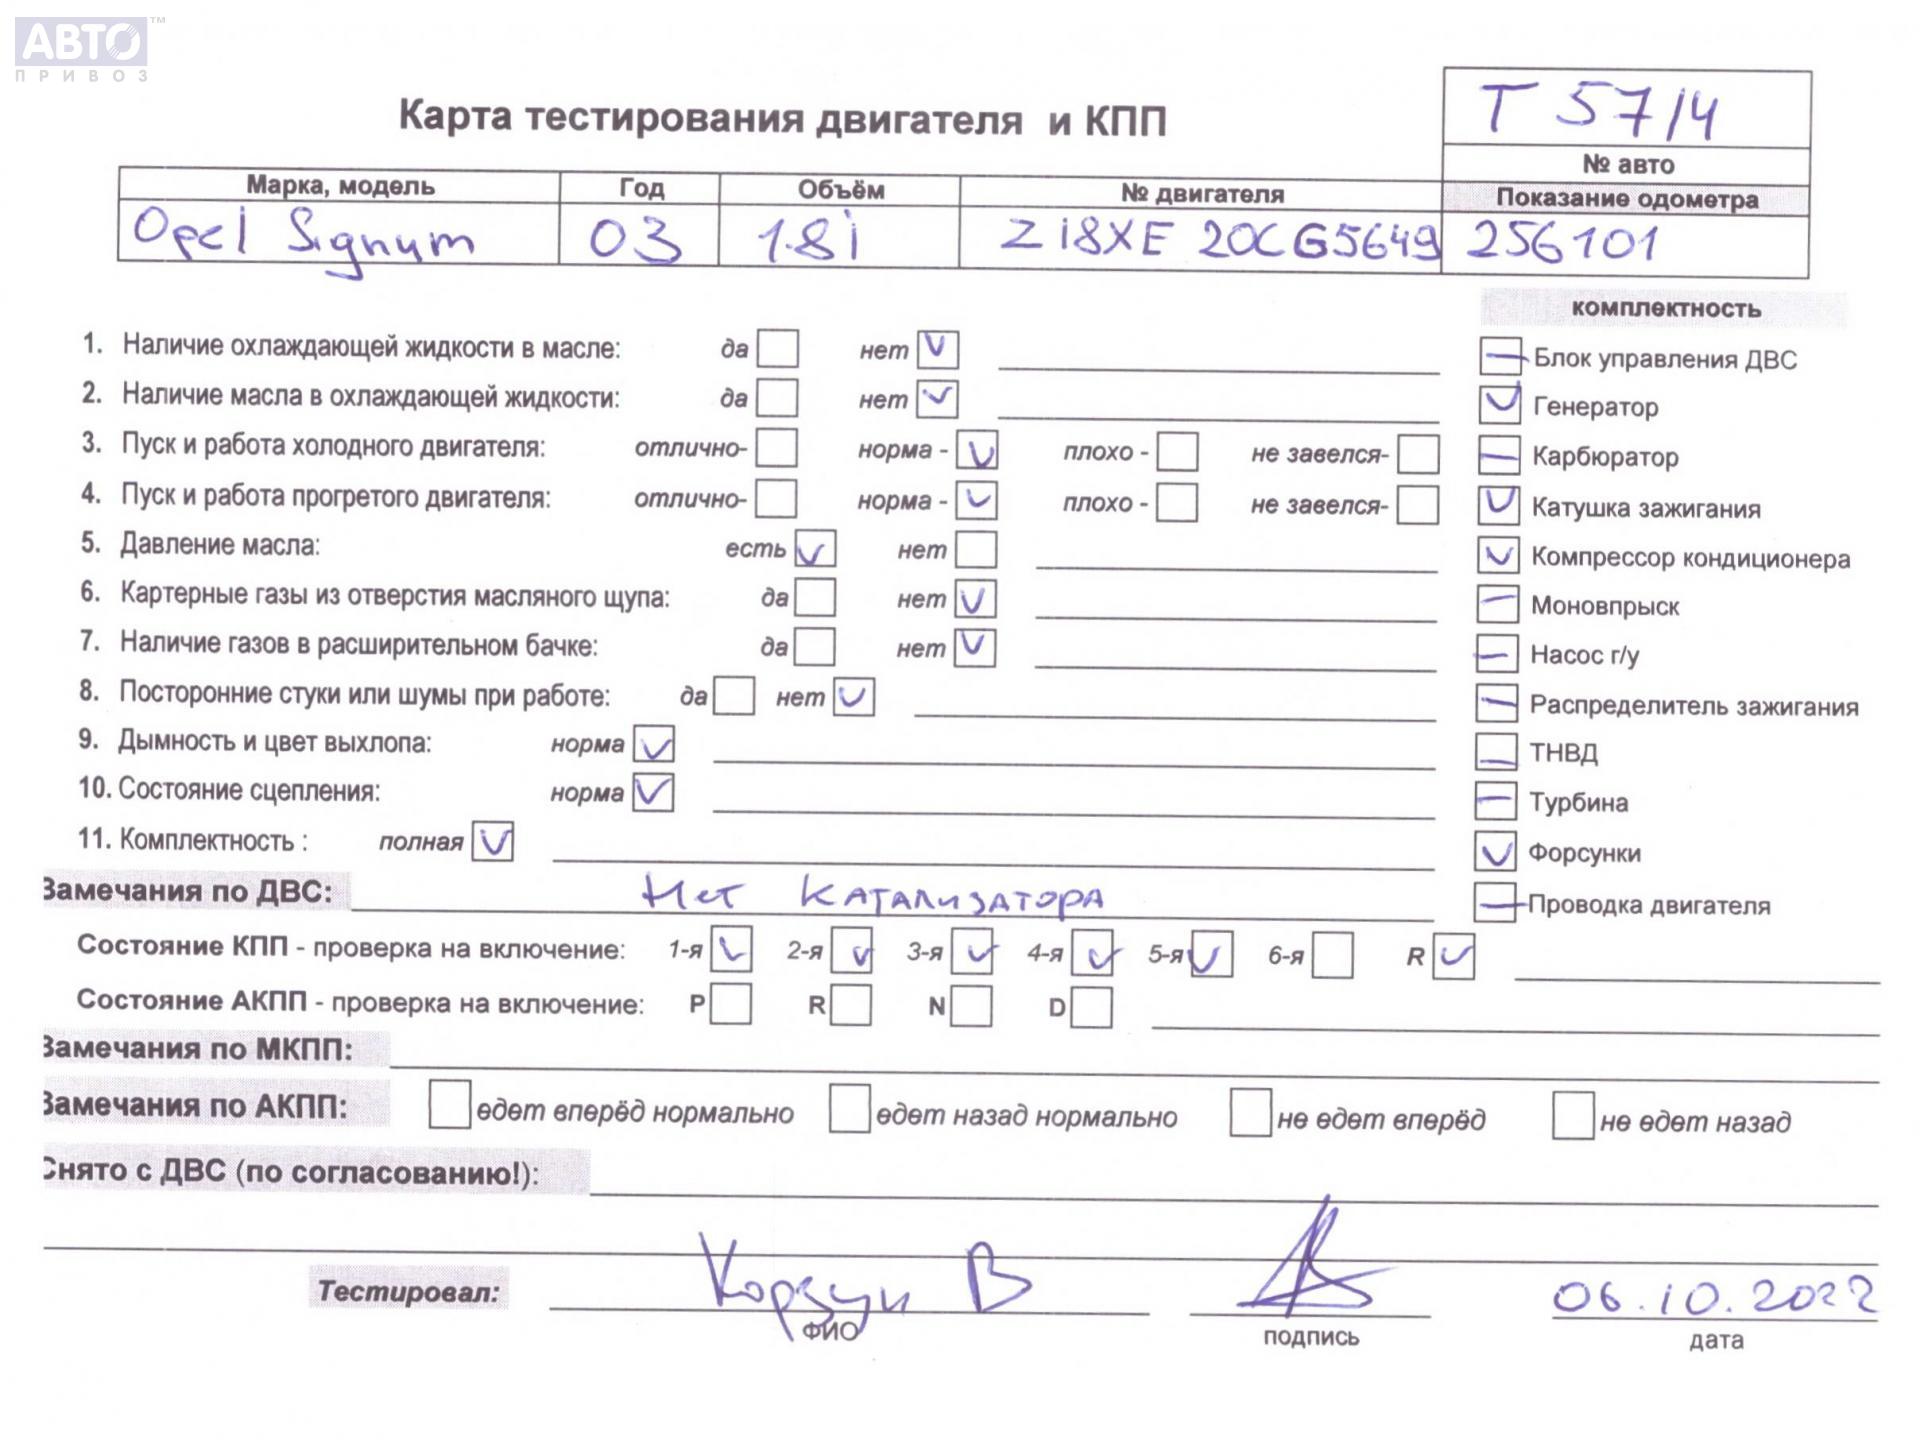 АВТО™
ПРИВОЗ
Т 57/4
Карта тестирования двигателя и КПП
№ авто
Марка, модель Год Объём № двигателя Показание одометра
Opel Signum 03 1.8i Z18XE 20CG5649 256101
комплектность
1. Наличие охлаждающей жидкости в масле: да нет Блок управления ДВС
2. Наличие масла в охлаждающей жидкости: да нет Генератор
3. Пуск и работа холодного двигателя: отлично- норма - плохо - не завелся- Карбюратор
4. Пуск и работа прогретого двигателя: отлично- норма - плохо - не завелся- Катушка зажигания
5. Давление масла: есть нет Компрессор кондиционера
6. Картерные газы из отверстия масляного щупа: да нет Моновпрыск
7. Наличие газов в расширительном бачке: да нет Насос г/у
8. Посторонние стуки или шумы при работе: да нет Распределитель зажигания
9. Дымность и цвет выхлопа: норма ТНВД
10. Состояние сцепления: норма Турбина
11. Комплектность : полная Форсунки
Замечания по ДВС: Нет катализатора Проводка двигателя
Состояние КПП - проверка на включение: 1-я 2-я 3-я 4-я 5-я 6-я R
Состояние АКПП - проверка на включение: P R N D
Замечания по МКПП:
Замечания по АКПП: едет вперёд нормально едет назад нормально не едет вперёд не едет назад
Снято с ДВС (по согласованию!):
Тестировал: Корзун В 06.10.2022
ФИО подпись дата